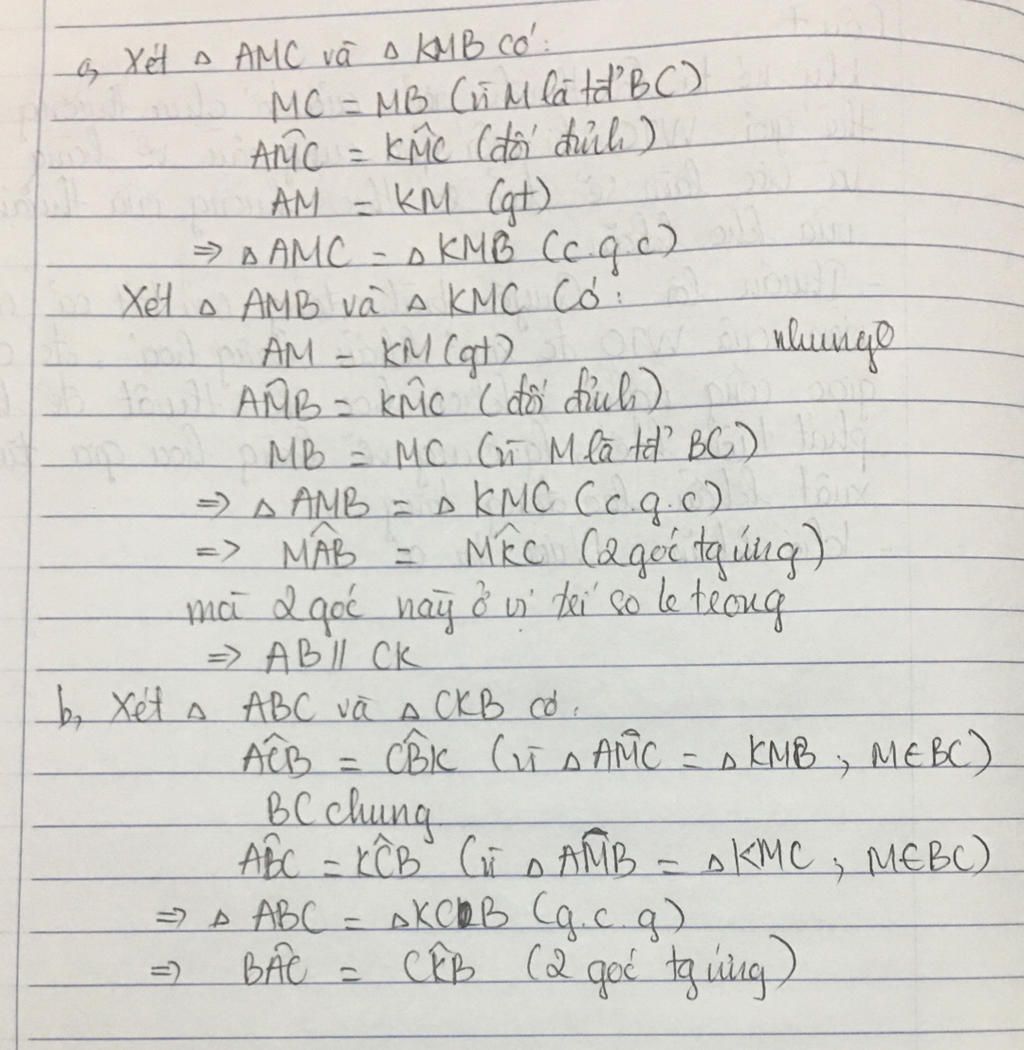 a, Xét △ AMC và △ KMB có:
MC = MB (vì M là tđ' BC)
AM̂C = KM̂C (đối đỉnh)
AM = KM (gt)
⇒ △ AMC = △ KMB (c.g.c)
Xét △ AMB và △ KMC Có:
AM = KM (gt)
nhung
AM̂B = KM̂C (đối đỉnh)
MB = MC (vì M là tđ' BC)
⇒ △ AMB = △ KMC (c.g.c)
⇒ MÂB = MK̂C (2 góc tg ứng)
mà 2 góc này ở vị trí so le trong
⇒ AB // CK
b, Xét △ ABC và △ CKB có:
AĈB = CB̂K (vì △ AM̂C = △ KMB, M∈BC)
BC chung
AB̂C = KĈB (vì △ AM̂B = △ KMC, M∈BC)
⇒ △ ABC = △KCB (g.c.g)
⇒ BÂC = CK̂B (2 góc tg ứng)